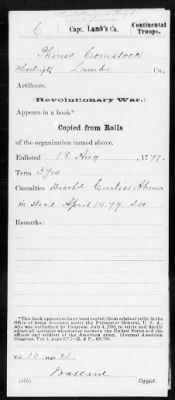 6 Capt. Lamb's Co. Continental Troops.
Comstock
Lambs Co.,
Artificers.
(Revolutionary War.)
Appears in a book*
Copied from Rolls
of the organization named above.
Enlisted 18 Aug, 1777.
Term 3 yrs
Casualties
in stead April 14 79
Remarks:
*This book appears to have been copied (from original rolls) in the
Office of Army Accounts under the Paymaster General, U. S. A.,
who was authorized by Congress, July 4, 1783, to settle and finally
adjust all accounts whatsoever between the United States and the
officers and soldiers of the American army. (Journal American
Congress, Vol. 4, page 237.)—R. & P.
Vol. 10 page 31
Copyist.